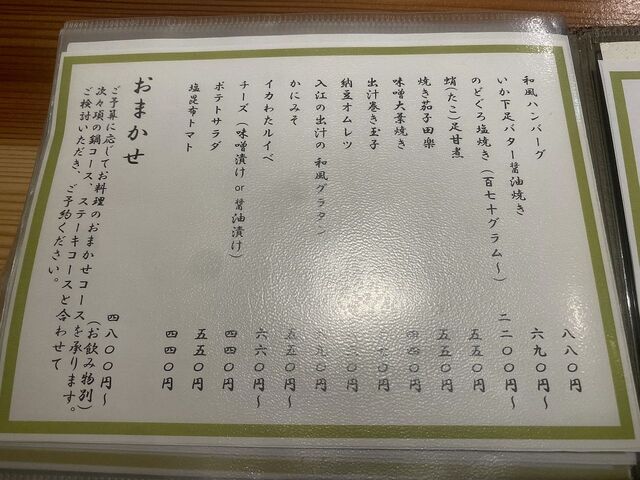 和風ハンバーグ 八八〇円
いか下足バター醤油焼き 六九〇円～
のどぐろ塩焼き(百七十グラム～) 二二〇〇円～
蛸(たこ)足甘煮 五五〇円
焼き茄子田楽 五五〇円
味噌大葉焼き 四四〇円
出汁巻き玉子
納豆オムレツ
入江の出汁の和風グラタン
かにみそ 五五〇円～
イカわたルイベ 六六〇円～
チーズ(味噌漬け or 醤油漬け) 四四〇円
ポテトサラダ 五五〇円
塩昆布トマト 四四〇円
おまかせ 四八〇〇円～
(お飲み物別)
ご予算に応じてお料理のおまかせコースを承ります。
次々項の鍋コース、ステーキコースと合わせて
ご検討いただき、ご予約ください。